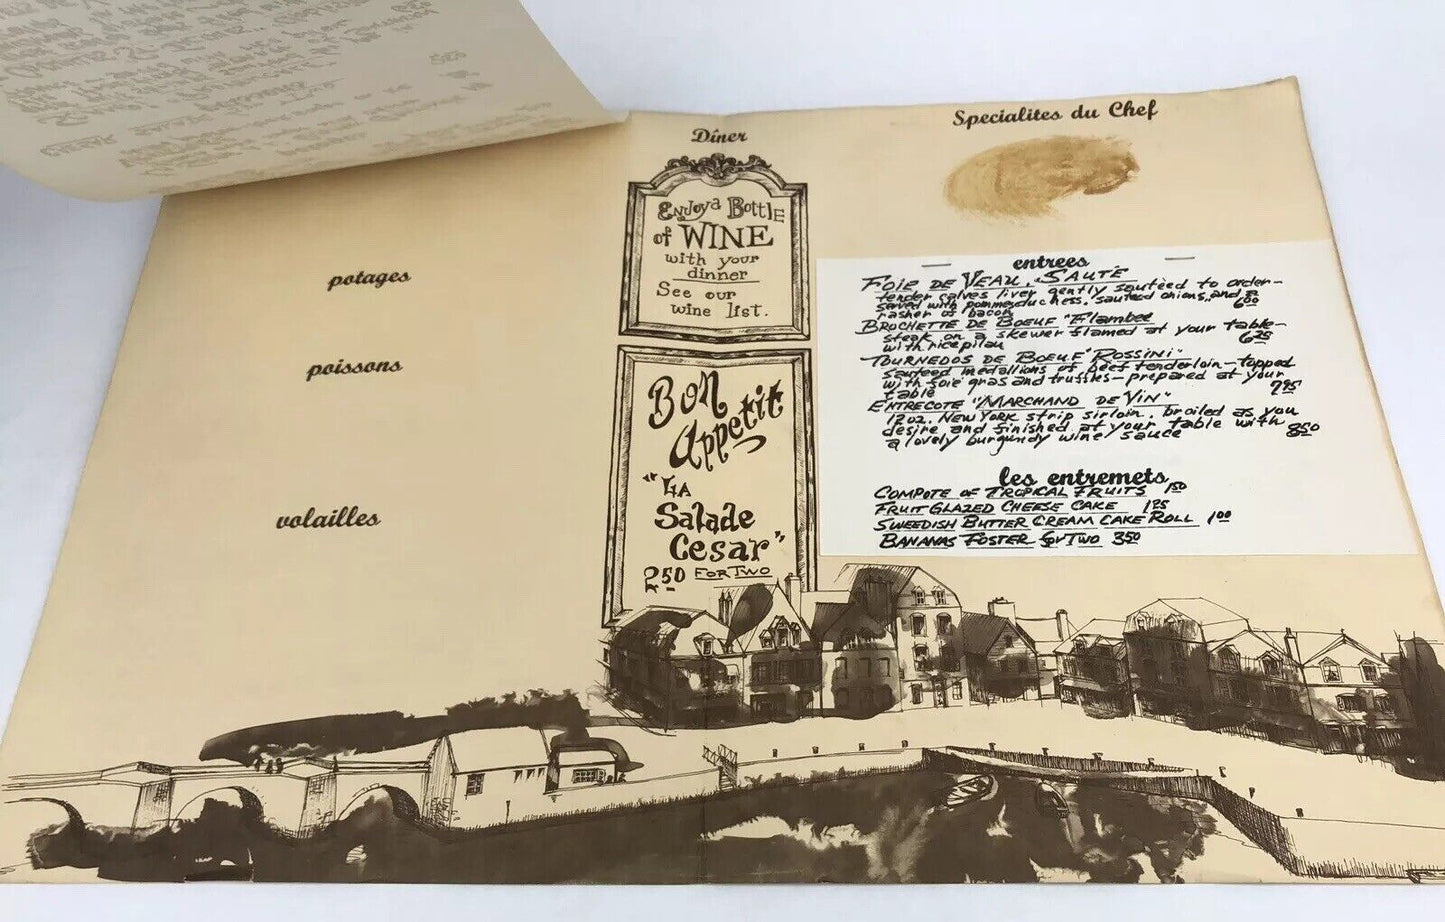 Dîner
Enjoy a Bottle
of WINE
with your
dinner
See our
wine list.
Bon
Appetit
"La
Salade
Cesar"
2.50 For Two
potages
poissons
volailles
Specialites du Chef
entrees
FOIE DE VEAU, "SAUTÉ
tender calves liver gently sautéed to order-
served with pomme duchess, sauteed onions, and a
rasher of bacon 6.00
BROCHETTE DE BOEUF "Flambee
steak on a skewer flamed at your table-
with rice pilau 6.25
TOURNEDOS DE BOEUF "ROSSINI"
sauteed medallions of beef tenderloin-topped
with foie gras and truffles-prepared at your
table 7.95
ENTRECOTE "MARCHAND DE VIN"
12 oz. NEW YORK strip sirloin, broiled as you
desire and finished at your table with
a lovely burgundy wine sauce 8.50
les entremets
COMPOTE OF TROPICAL FRUITS 1.50
FRUIT GLAZED CHEESE CAKE 1.25
SWEEDISH BUTTER CREAM CAKE ROLL 1.00
BANANAS FOSTER for TWO 3.50